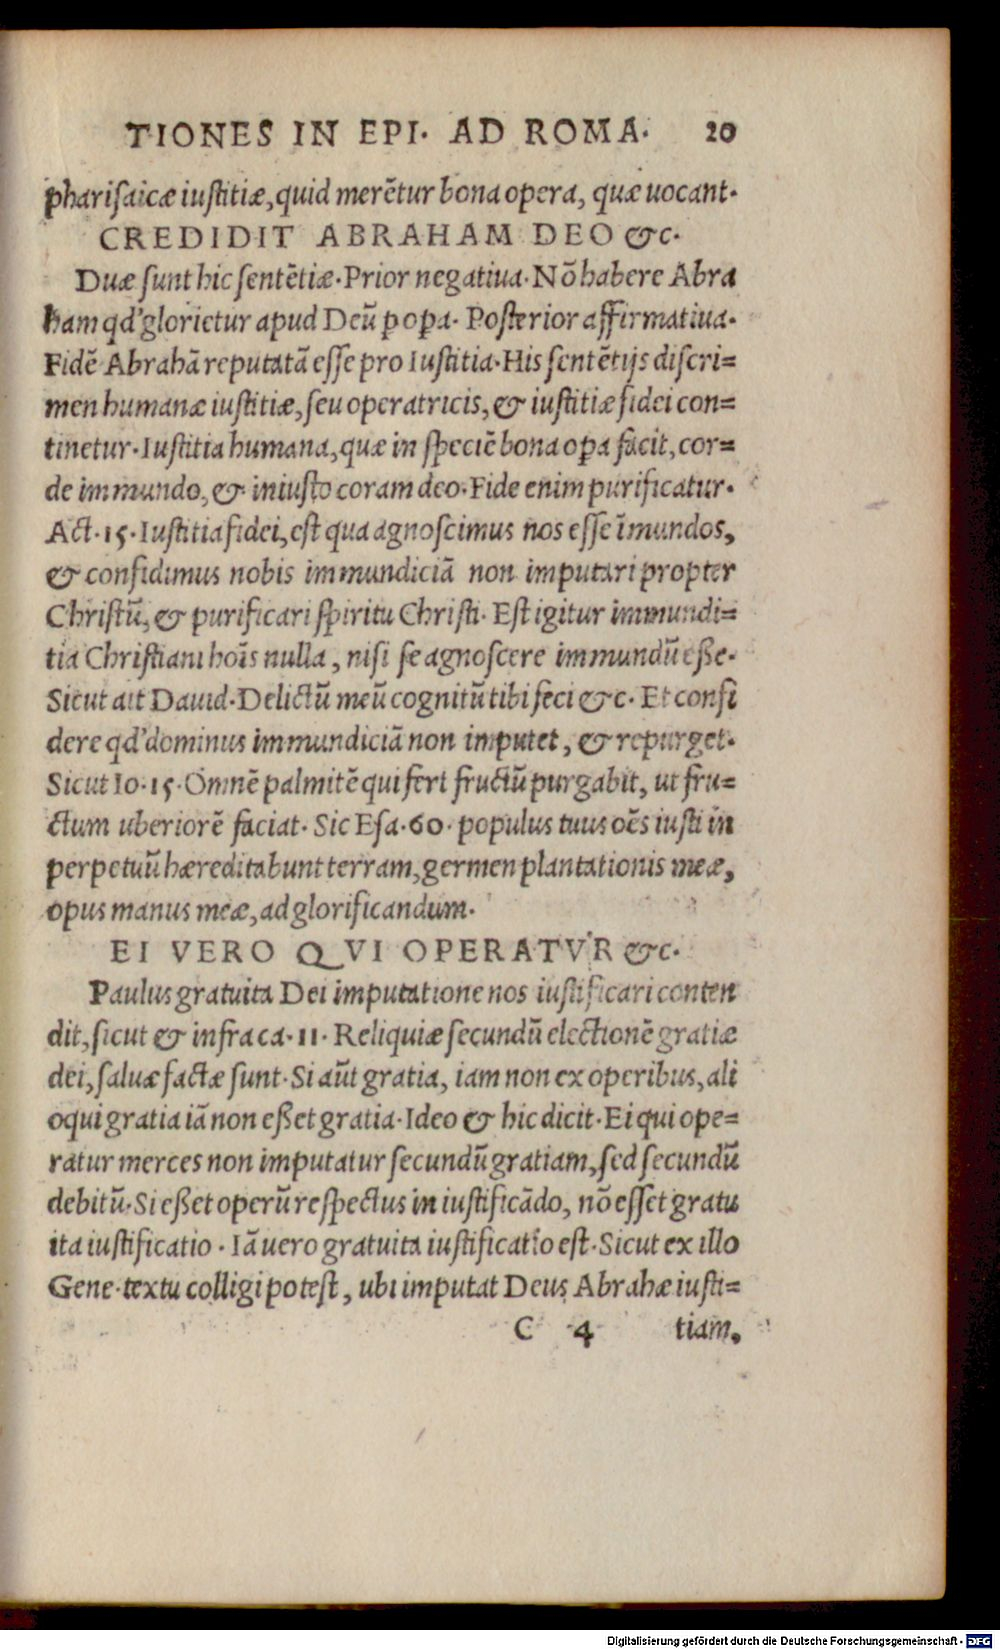 TIONES IN EPI. AD ROMA. 20
pharisaicæ iustitiæ, quid merētur bona opera, quæ uocant.
CREDIDIT ABRAHAM DEO &c.
Duæ sunt hic sentētiæ. Prior negatiua. Nō habere Abra
ham qd' glorietur apud Deū p opa. Posterior affirmatiua.
Fidē Abrahā reputatā esse pro Iustitia. His sentētijs discri=
men humanæ iustitiæ, seu operatricis, & iustitiæ fidei con=
tinetur. Iustitia humana, quæ in speciē bona opa facit, cor=
de immundo, & iniusto coram deo. Fide enim purificatur.
Act. 15. Iustitia fidei, est qua agnoscimus nos esse īmundos,
& confidimus nobis immundiciā non imputari propter
Christū, & purificari spiritu Christi. Est igitur immundi=
tia Christiani hoīs nulla, nisi se agnoscere immundū eße.
Sicut ait Dauid. Delictū meū cognitū tibi feci &c. Et confi
dere qd' dominus immundiciā non imputet, & repurget.
Sicut Io. 15. Omnē palmitē qui fert fructū purgabit, ut fru=
ctum uberiorē faciat. Sic Esa. 60. populus tuus oēs iusti in
perpetuū hæreditabunt terram, germen plantationis meæ,
opus manus meæ, ad glorificandum.
EI VERO QVI OPERATVR &c.
Paulus gratuita Dei imputatione nos iustificari conten
dit, sicut & infra ca. 11. Reliquiæ secundū electionē gratiæ
dei, saluæ factæ sunt. Si aūt gratia, iam non ex operibus, ali
oqui gratia iā non eßet gratia. Ideo & hic dicit. Ei qui ope=
ratur merces non imputatur secundū gratiam, sed secundū
debitū. Si eßet operū respectus in iustificādo, nō esset gratu
ita iustificatio. Iā uero gratuita iustificatio est. Sicut ex illo
Gene. textu colligi potest, ubi imputat Deus Abrahæ iusti=
C 4 tiam,
Digitalisierung gefördert durch die Deutsche Forschungsgemeinschaft - DFG